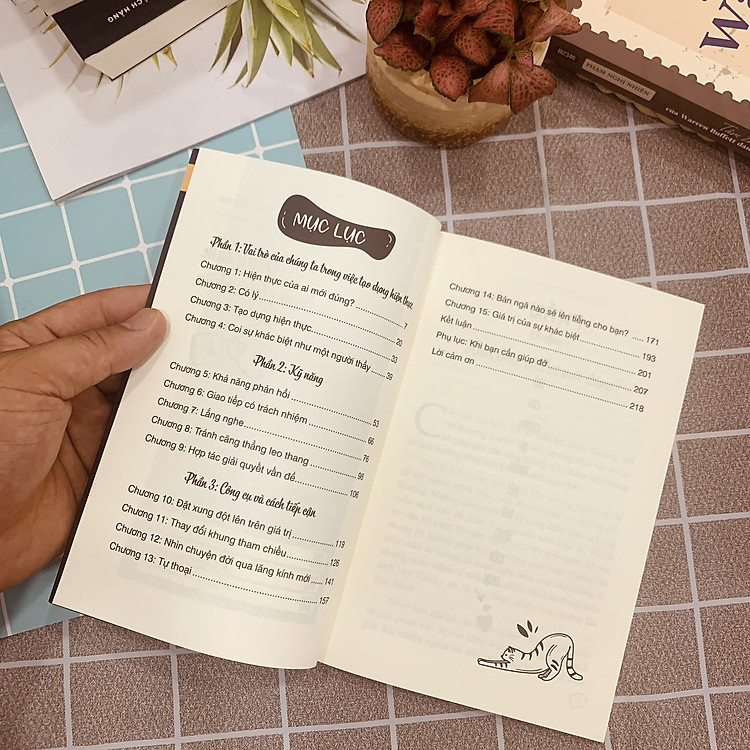 CH HÀNG
PHẠM NGHỊ NHIÊN
của Warren Buffett
MỤC LỤC
Phần 1: Vai trò của chúng ta trong việc tạo dựng hiện thực
Chương 1: Hiện thực của ai mới đúng? 7
Chương 2: Có lý 20
Chương 3: Tạo dựng hiện thực 33
Chương 4: Coi sự khác biệt như một người thầy 39
Phần 2: Kỹ năng
Chương 5: Khả năng phản hồi 53
Chương 6: Giao tiếp có trách nhiệm 66
Chương 7: Lắng nghe 76
Chương 8: Tránh căng thẳng leo thang 98
Chương 9: Hợp tác giải quyết vấn đề 106
Phần 3: Công cụ và cách tiếp cận
Chương 10: Đặt xung đột lên trên giá trị 119
Chương 11: Thay đổi khung tham chiếu 126
Chương 12: Nhìn chuyện đời qua lăng kính mới 141
Chương 13: Tự thoại 157
Chương 14: Bản ngã nào sẽ lên tiếng cho bạn? 171
Chương 15: Giá trị của sự khác biệt 193
Kết luận 201
Phụ lục: Khi bạn cần giúp đỡ 207
Lời cảm ơn 218